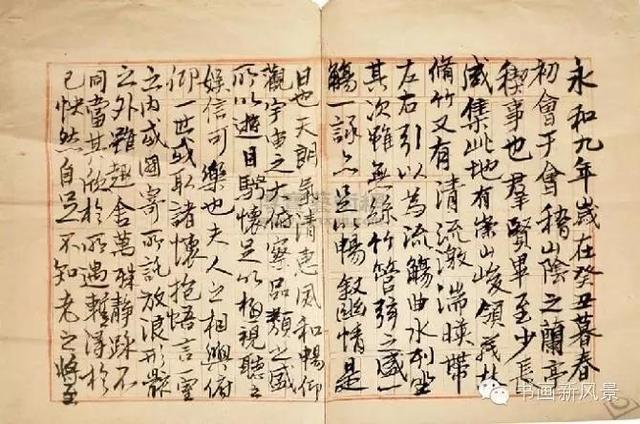 永和九年歲在癸丑暮春
初會于會稽山陰之蘭亭
稧事也羣賢畢至少長
咸集此地有崇山峻領茂林
脩竹又有清流激湍暎帶
左右引以為流觴曲水列坐
其次雖無絲竹管弦之盛一
觴一詠亦足以暢敘幽情是
日也天朗氣清惠風和暢仰
觀宇宙之大俯察品類之盛
所以遊目騁懷足以極視聽之
娛信可樂也夫人之相與俯
仰一世或取諸懷抱悟言一室
之內或因寄所託放浪形骸
之外雖趣舍萬殊靜躁不
同當其欣於所遇蹔得於
己快然自足不知老之將至
书画新风景